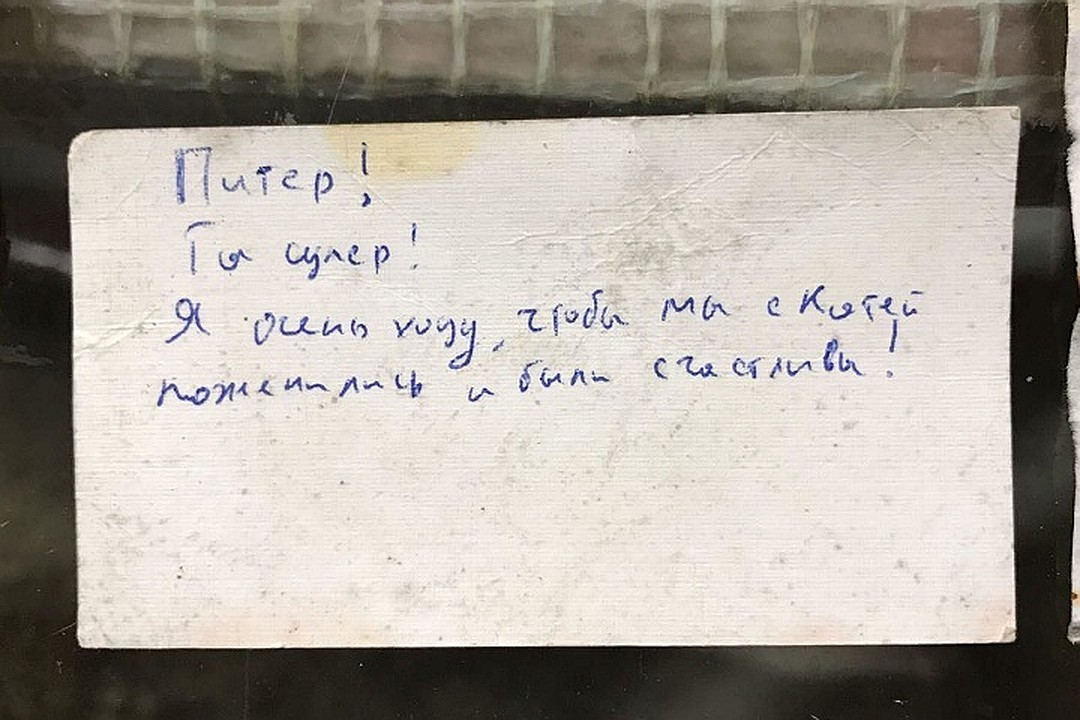 Питер!
Ты супер!
Я очень хочу, чтобы мы с Катей
поженились и были счастливы!